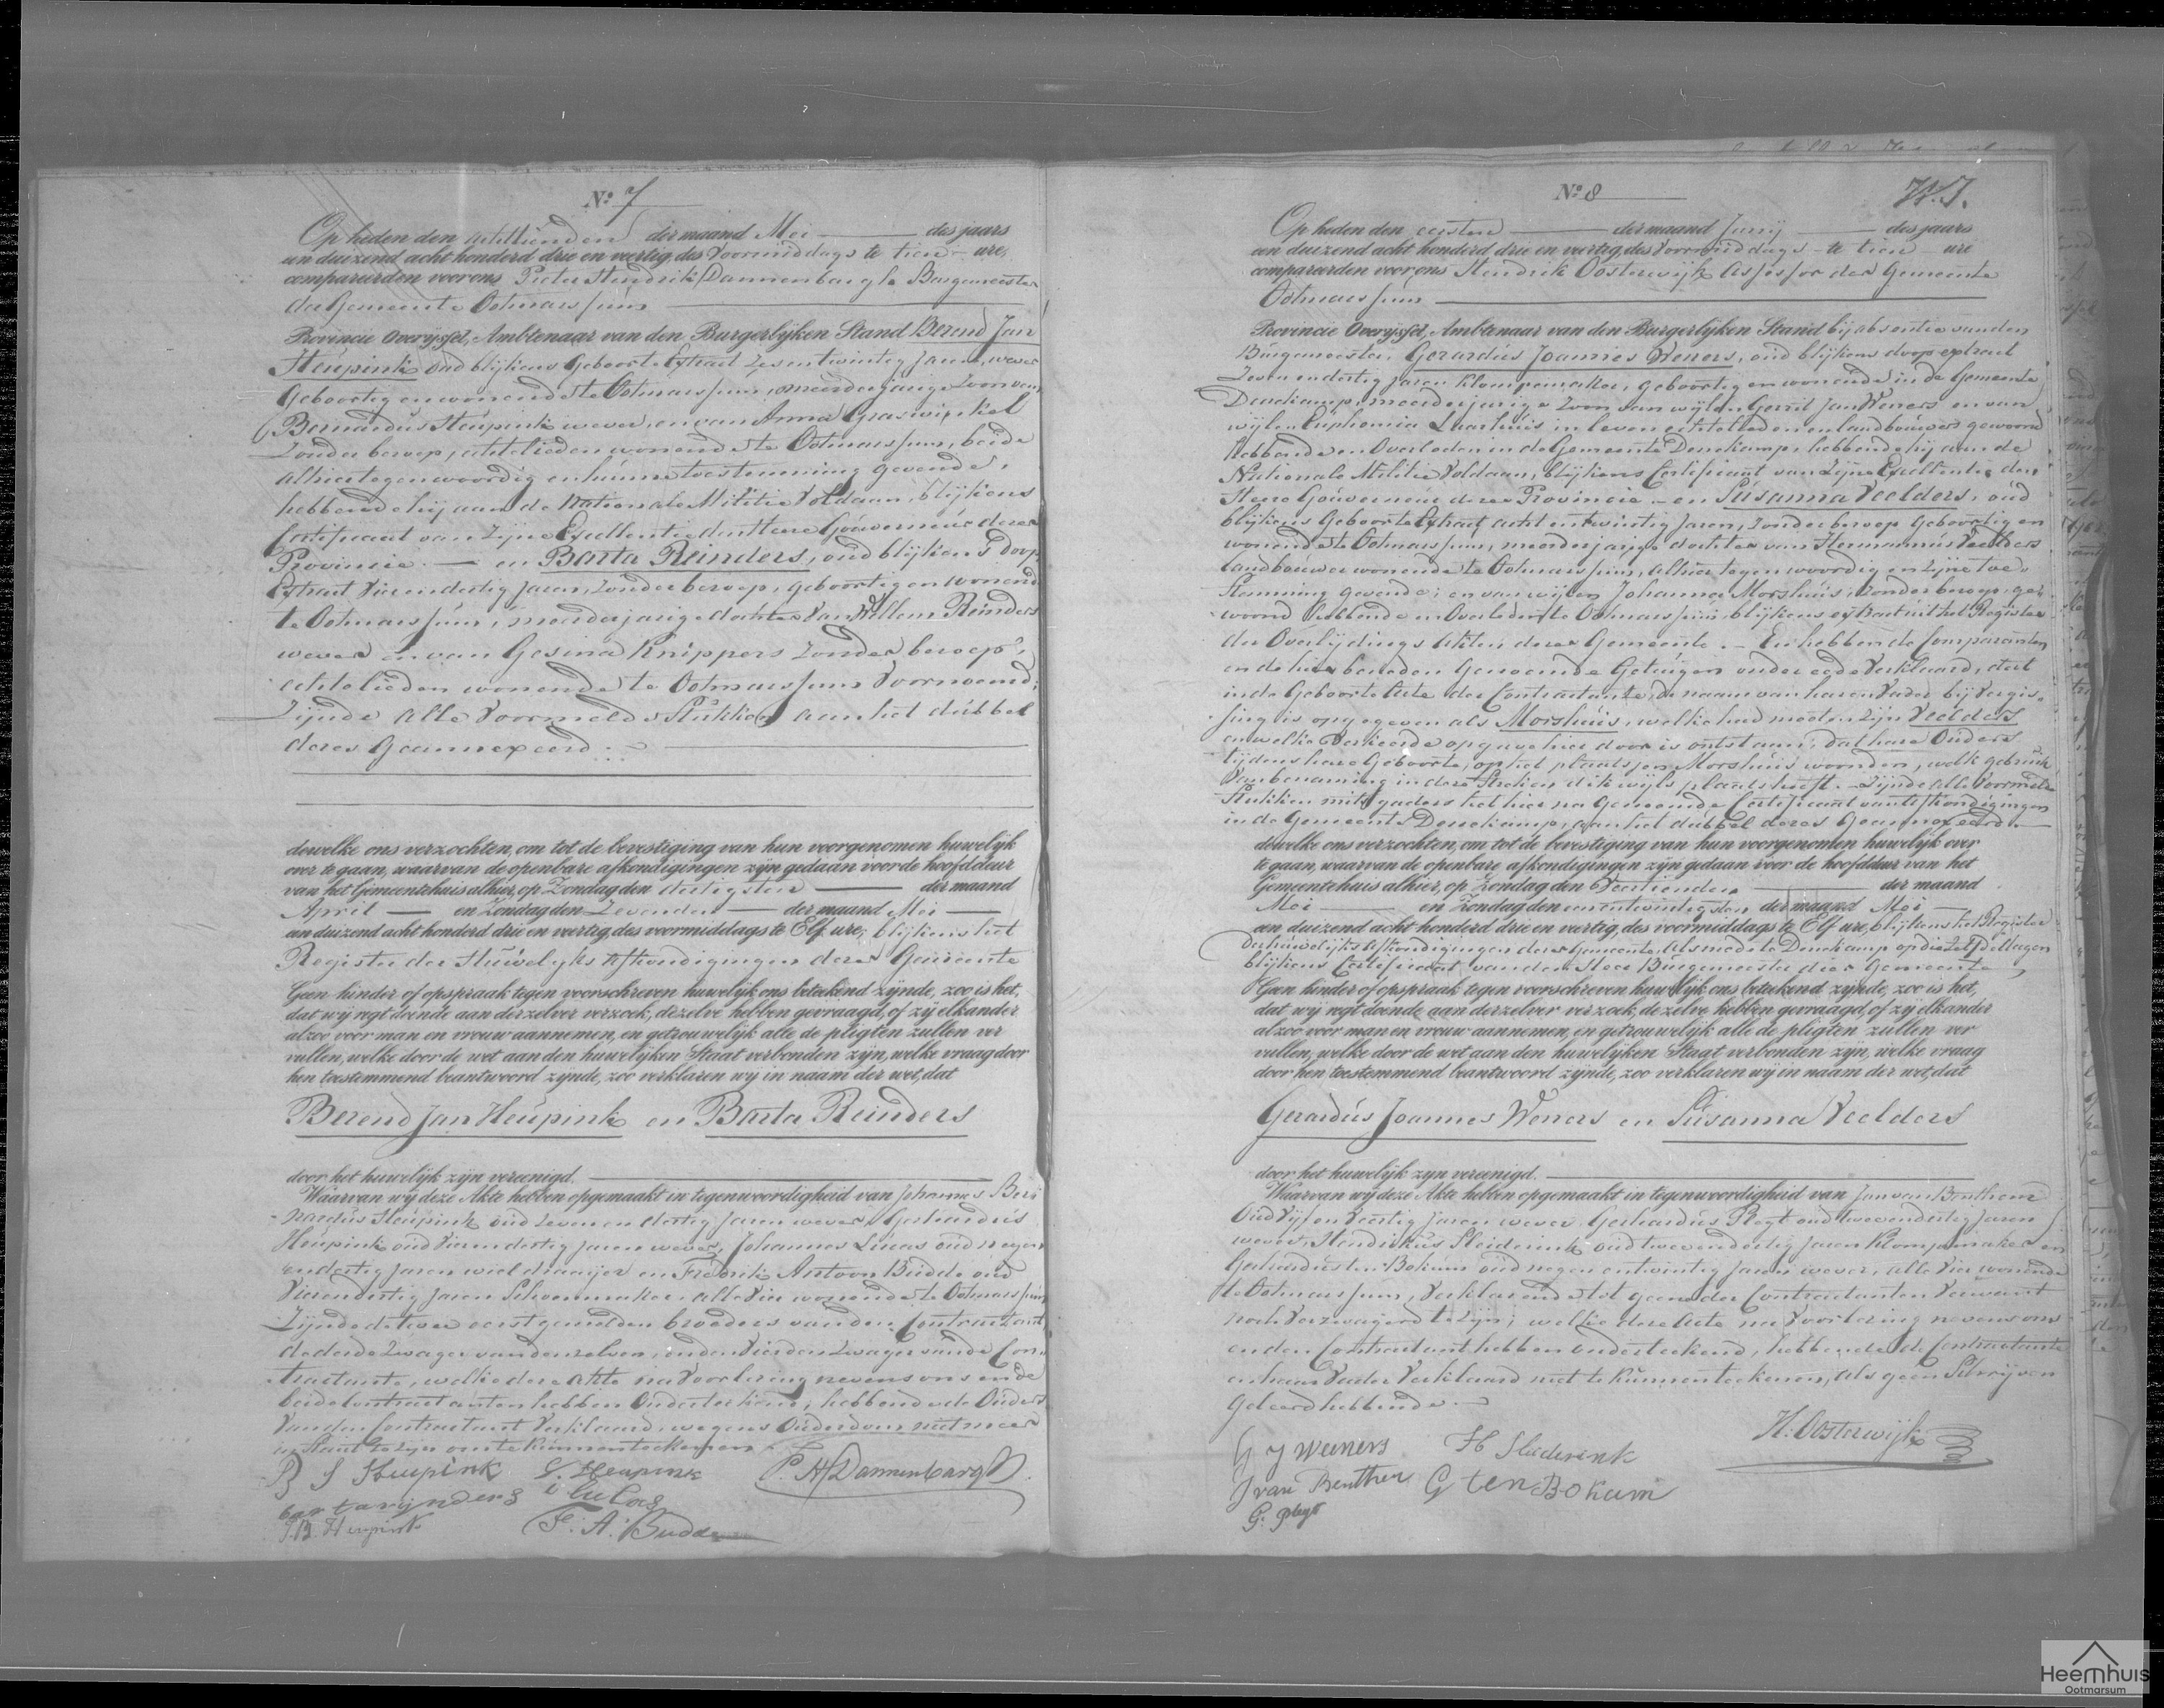 No. 7
Op heden den achttienden der maand Mei des jaars
een duizend acht honderd drie en veertig, des Voormiddags te tien ure,
compareerden voor ons Pieter Hendrik Dannenbargh Burgemeester
der Gemeente Ootmarssum
Provincie Overijssel, Ambtenaar van den Burgerlijken Stand Berend Jan
Heupink oud blijkens Geboorte Extract zesentwintig Jaren, wever
Geboortig en wonende te Ootmarssum, meerderjarige Zoon van
Bernardus Heupink wever, en van Anna Graswinkel
Zonder beroep, echtelieden wonende te Ootmarssum, beide
alhier tegenwoordig en hunne toestemming gevende,
hebbende hij aan de Nationale Militie Voldaan, blijkens
Certificaat van Zijne Excellentie den Heere Gouverneur dezer
Provincie. — en Barta Reinders, oud blijkens doop
Extract Vierendertig Jaren, Zonder beroep, geboortig en wonende
te Ootmarssum, meerderjarige dochter van Willem Reinders
wever en van Gesina Knippers Zonder beroep,
echtelieden wonende te Ootmarssum Voornoemd;
Zijnde alle Voormelde Stukken aan het dubbel
dezes Geannexeerd.
dewelke ons verzochten, om tot de bevestiging van hun voorgenomen huwelijk
over te gaan, waarvan de openbare afkondigingen zijn gedaan voor de hoofddeur
van het Gemeentehuis alhier, op Zondag den dertigsten der maand
April en Zondag den Zevenden der maand Mei
een duizend acht honderd drie en veertig, des voormiddags te Elf ure, blijkens het
Register der Huwelijks Afkondigingen dezer Gemeente
Geen hinder of opspraak tegen voorschreven huwelijk ons betekend zijnde, zoo is het,
dat wij regt doende aan derzelver verzoek, dezelve hebben gevraagd, of zij elkander
alzoo voor man en vrouw aannemen, en getrouwelijk alle de pligten zullen ver
vullen, welke door de wet aan den huwelijken Staat verbonden zijn, welke vraag door
hen toestemmend beantwoord zijnde, zoo verklaren wij in naam der wet, dat
Berend Jan Heupink en Barta Reinders
door het huwelijk zijn vereenigd.
Waarvan wij deze Akte hebben opgemaakt in tegenwoordigheid van Johannes Ber
nardus Heupink oud Zevenendertig Jaren wever, Gerhardus
Heupink oud Vierendertig Jaren wever, Johannes Lucas oud negen
endertig Jaren wieldraaijer en Fredrik Antoon Budde oud
Vierendertig Jaren Schoenmaker, alle Vier wonende te Ootmarssum
Zijnde de twee eerstgemelden broeders van den Contractant
de derde Zwager van denzelven, en den Vierden Zwager van de Con
tractante, welke deze Akte na Voorlezing nevens ons en de
beide Contractanten hebben Onderteekend, hebbende de Ouders
van den Contractant Verklaard, wegens Ouderdom niet meer
in Staat te zijn om te kunnen teekenen.
B J Heupink G. Heupink P. H. Dannenbargh.
barta rijnders J Lucas
J.B. Heupink F. A. Budde
No. 8
Op heden den eersten der maand Junij des jaars
een duizend acht honderd drie en veertig, des Voormiddags te tien ure
compareerden voor ons Hendrik Oosterwijk Assessor der Gemeente
Ootmarssum
Provincie Overijssel, Ambtenaar van den Burgerlijken Stand bij absentie van den
Burgemeester, Gerardus Joannes Weners, oud blijkens doop extract
Zevenendertig Jaren Klompemaker, Geboortig en wonende in de Gemeente
Denekamp, meerderjarige Zoon van wijlen Gerrit Jan Weners en van
wijlen Euphemia in leven echtelieden en landbouwers gewoond
hebbende en Overleden in de Gemeente Denekamp, hebbende hij aan de
Nationale Militie Voldaan, blijkens Certificaat van Zijne Excellentie den
Heere Gouverneur dezer Provincie — en Susanna Veelders, oud
blijkens Geboorte Extract acht en twintig Jaren, zonder beroep Geboortig en
wonende te Ootmarssum, meerderjarige dochter van Hermannus Veelders
landbouwer wonende te Ootmarssum, alhier tegenwoordig en zijne toe
stemming gevende; en van wijlen Johanna Morshuis, Zonder beroep, ge
woond hebbende en Overleden te Ootmarssum, blijkens extract uit het Register
der Overlijdings Akten dezer Gemeente. — En hebben de Comparanten
en de hier beneden Genoemde Getuigen onder eede Verklaard, dat
in de Geboorte Acte der Contractante, de naam van haren Vader bij Vergis
sing is opgegeven als Morshuis, welke had moeten zijn Veelders
en welke Verkeerde opgave hier door is ontstaan, dat hare Ouders
tijdens hare Geboorte, op het plaatsjen Morshuis woonden, welk gebruik
van benaming in deze Streken dikwijls plaats heeft. — Zijnde alle Voormelde
Stukken mitsgaders het hier na Genoemde Certificaat van afkondigingen
in de Gemeente Denekamp, aan het dubbel dezes Geannexeerd.
dewelke ons verzochten, om tot de bevestiging van hun voorgenomen huwelijk over
te gaan, waarvan de openbare afkondigingen zijn gedaan voor de hoofddeur van het
Gemeentehuis alhier, op Zondag den Veertienden der maand
Mei en Zondag den eenentwintigsten der maand Mei
een duizend acht honderd drie en veertig, des voormiddags te Elf ure, blijkens het Register
der huwelijks afkondigingen dezer Gemeente, alsmede te Denekamp op die Zelfde dagen
blijkens Certificaat van den Heer Burgemeester dier Gemeente
Geen hinder of opspraak tegen voorschreven huwelijk ons betekend zijnde, zoo is het,
dat wij regt doende aan derzelver verzoek, dezelve hebben gevraagd, of zij elkander
alzoo voor man en vrouw aannemen, en getrouwelijk alle de pligten zullen ver
vullen, welke door de wet aan den huwelijken Staat verbonden zijn, welke vraag
door hen toestemmend beantwoord zijnde, zoo verklaren wij in naam der wet, dat
Gerardus Joannes Weners en Susanna Veelders
door het huwelijk zijn vereenigd.
Waarvan wij deze Akte hebben opgemaakt in tegenwoordigheid van Jan van Benthem
Oud Vijfenveertig Jaren wever Gerhardus Plegt oud tweeendertig Jaren
wever, Hendrikus Sleiderink oud tweeendertig Jaren Klompmaker en
Gerhardus ten Bokum oud negenentwintig Jaren wever, alle Vier wonende
te Ootmarssum, Verklarende tot geen der Contractanten Verwant
noch Verzwagerd te zijn; welke deze Acte na Voorlezing nevens ons
en den Contractant hebben onderteekend, hebbende de Contractante
en haar Vader Verklaard niet te kunnen teekenen, als geen Schrijven
geleerd hebbende.
G J Weners H Sleiderink H. Oosterwijk
J van Benthem G ten Bokum
G. Plegt
Heemhuis
Ootmarsum